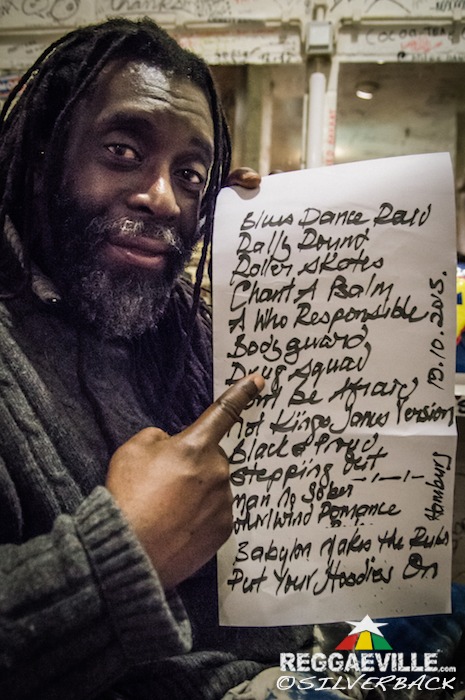 Blues Dance Raid
Rally Round
Roller Skates
Chant A Psalm
A Who Responsible
Bodyguard
Drug Squad
Dont Be Afraid
Not Kings James Version
Black & Proud
Stepping Out
Man No Sober
Whirlwind Romance
Babylon Makes The Rules
Put Your Hoodies On
19.10.2015.
Hamburg
REGGAEVILLE.com
©SILVERBACK